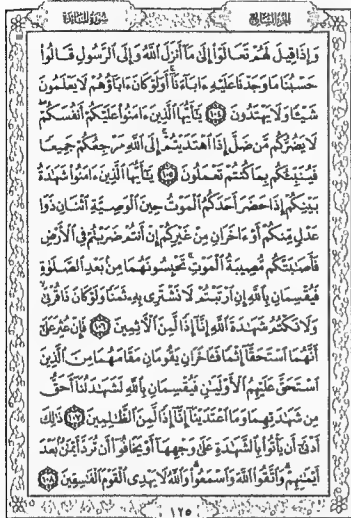 الجزء السابع
سورة المائدة
وَإِذَا قِيلَ لَهُمْ تَعَالَوْا إِلَىٰ مَا أَنزَلَ اللَّهُ وَإِلَى الرَّسُولِ قَالُوا
حَسْبُنَا مَا وَجَدْنَا عَلَيْهِ ءَابَآءَنَآ أَوَلَوْ كَانَ ءَابَآؤُهُمْ لَا يَعْلَمُونَ
شَيْـًٔا وَلَا يَهْتَدُونَ ١٠٤ يَـٰٓأَيُّهَا الَّذِينَ ءَامَنُوا عَلَيْكُمْ أَنفُسَكُمْ
لَا يَضُرُّكُم مَّن ضَلَّ إِذَا اهْتَدَيْتُمْ إِلَى اللَّهِ مَرْجِعُكُمْ جَمِيعًا
فَيُنَبِّئُكُم بِمَا كُنتُمْ تَعْمَلُونَ ١٠٥ يَـٰٓأَيُّهَا الَّذِينَ ءَامَنُوا شَهَـٰدَةُ
بَيْنِكُمْ إِذَا حَضَرَ أَحَدَكُمُ الْمَوْتُ حِينَ الْوَصِيَّةِ اثْنَانِ ذَوَا
عَدْلٍ مِّنكُمْ أَوْ ءَاخَرَانِ مِنْ غَيْرِكُمْ إِنْ أَنتُمْ ضَرَبْتُمْ فِي الْأَرْضِ
فَأَصَـٰبَتْكُم مُّصِيبَةُ الْمَوْتِ تَحْبِسُونَهُمَا مِن بَعْدِ الصَّلَوٰةِ
فَيُقْسِمَانِ بِاللَّهِ إِنِ ارْتَبْتُمْ لَا نَشْتَرِي بِهِ ثَمَنًا وَلَوْ كَانَ ذَا قُرْبَىٰ
وَلَا نَكْتُمُ شَهَـٰدَةَ اللَّهِ إِنَّآ إِذًا لَّمِنَ الْـَٔاثِمِينَ ١٠٦ فَإِنْ عُثِرَ عَلَىٰٓ
أَنَّهُمَا اسْتَحَقَّآ إِثْمًا فَـَٔاخَرَانِ يَقُومَانِ مَقَامَهُمَا مِنَ الَّذِينَ
اسْتَحَقَّ عَلَيْهِمُ الْأَوْلَيَـٰنِ فَيُقْسِمَانِ بِاللَّهِ لَشَهَـٰدَتُنَآ أَحَقُّ
مِن شَهَـٰدَتِهِمَا وَمَا اعْتَدَيْنَآ إِنَّآ إِذًا لَّمِنَ الظَّـٰلِمِينَ ١٠٧ ذَٰلِكَ
أَدْنَىٰٓ أَن يَأْتُوا بِالشَّهَـٰدَةِ عَلَىٰ وَجْهِهَآ أَوْ يَخَافُوٓا أَن تُرَدَّ أَيْمَـٰنٌ بَعْدَ
أَيْمَـٰنِهِمْ وَاتَّقُوا اللَّهَ وَاسْمَعُوا وَاللَّهُ لَا يَهْدِي الْقَوْمَ الْفَـٰسِقِينَ ١٠٨
١٢٥